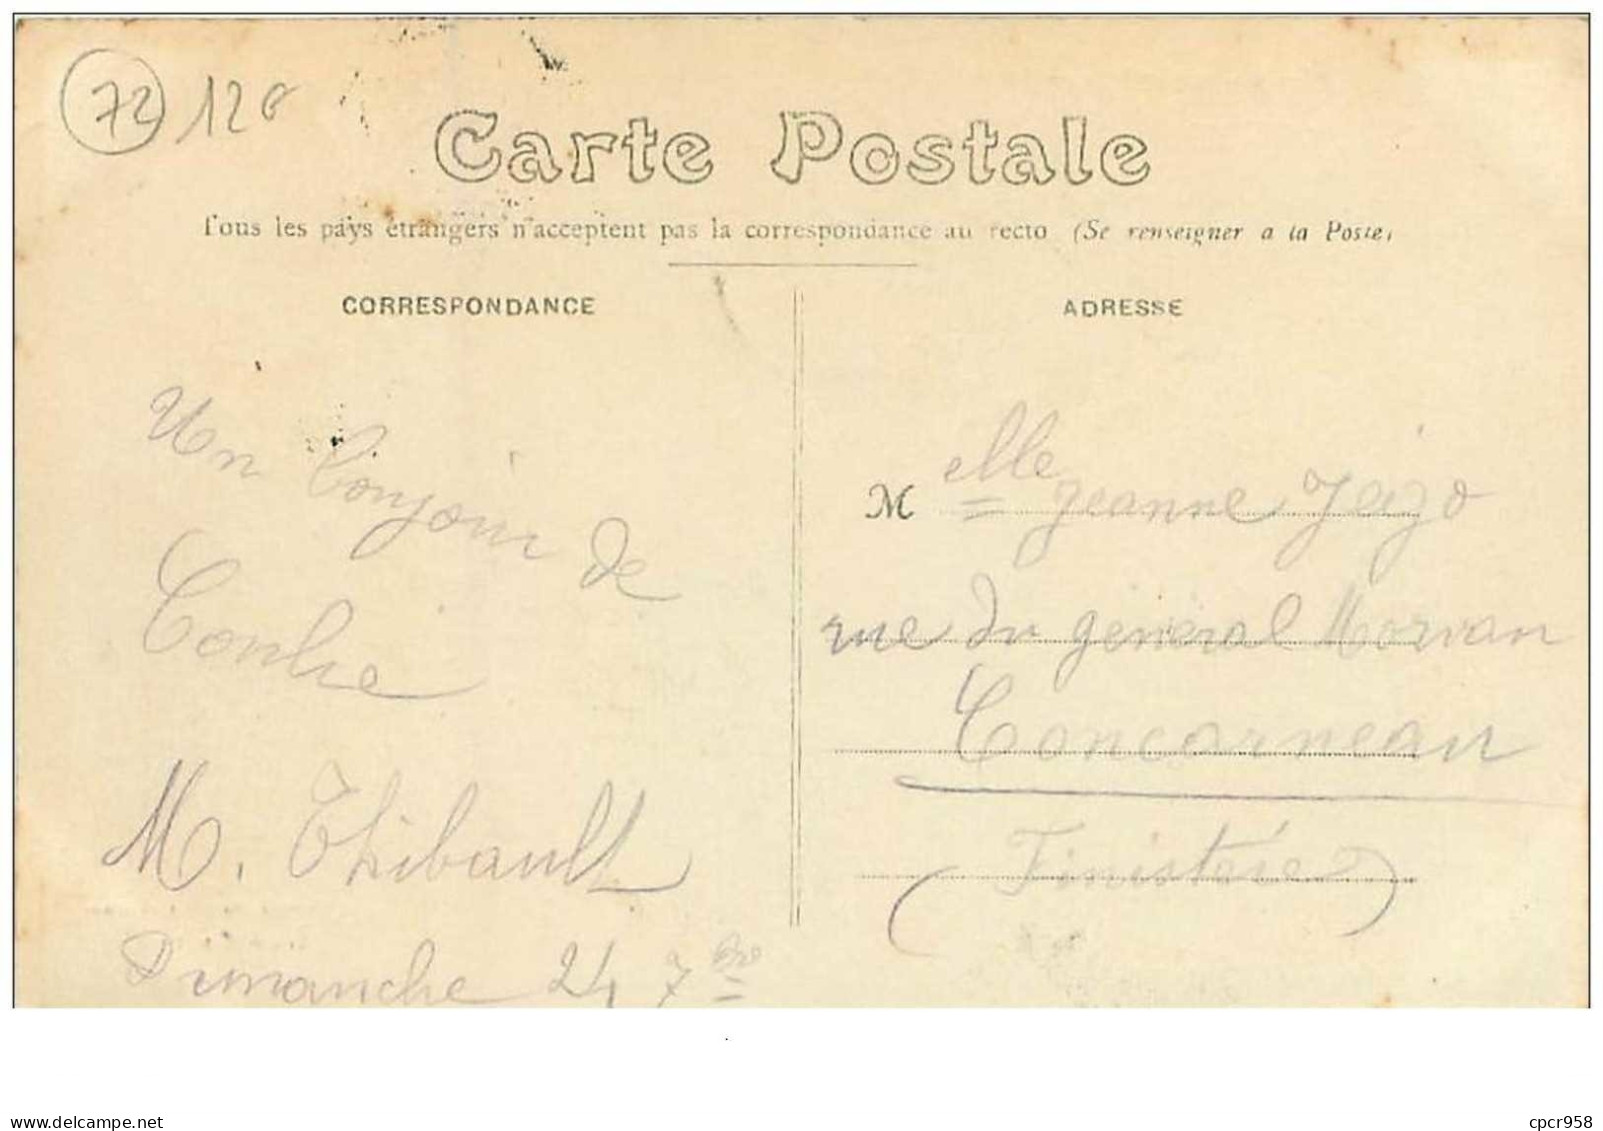 72 128
Carte Postale
Tous les pays étrangers n'acceptent pas la correspondance au recto (Se renseigner a la Poste)
CORRESPONDANCE
ADRESSE
Un bonjour de
Conlie
M. Thibault
Dimanche 24 7bre
Melle Jeanne
rue du général Morvan
Concarneau
(Finistère)
cpcr958
www.delcampe.net